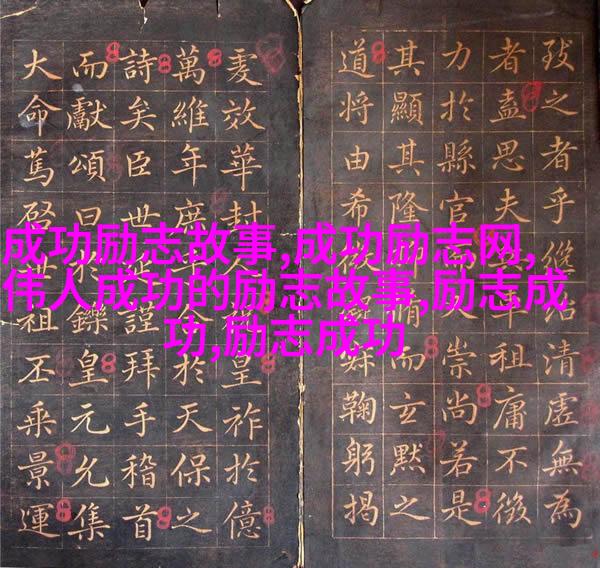 成功励志故事,成功励志网,
伟人成功的励志故事,励志成
功,励志成功
之者乎紹清虛無為
者盍思夫祖庸不
力於縣官崇尚若是
其顯其隆而玄默之
道將由希鞠躬揭
效華封人皇祚於億
萬維年庶於天保之
詩矣臣世延謹拜手稽首
而獻頌曰於鑠皇元允集
大命篤啓世祖丕乘景運